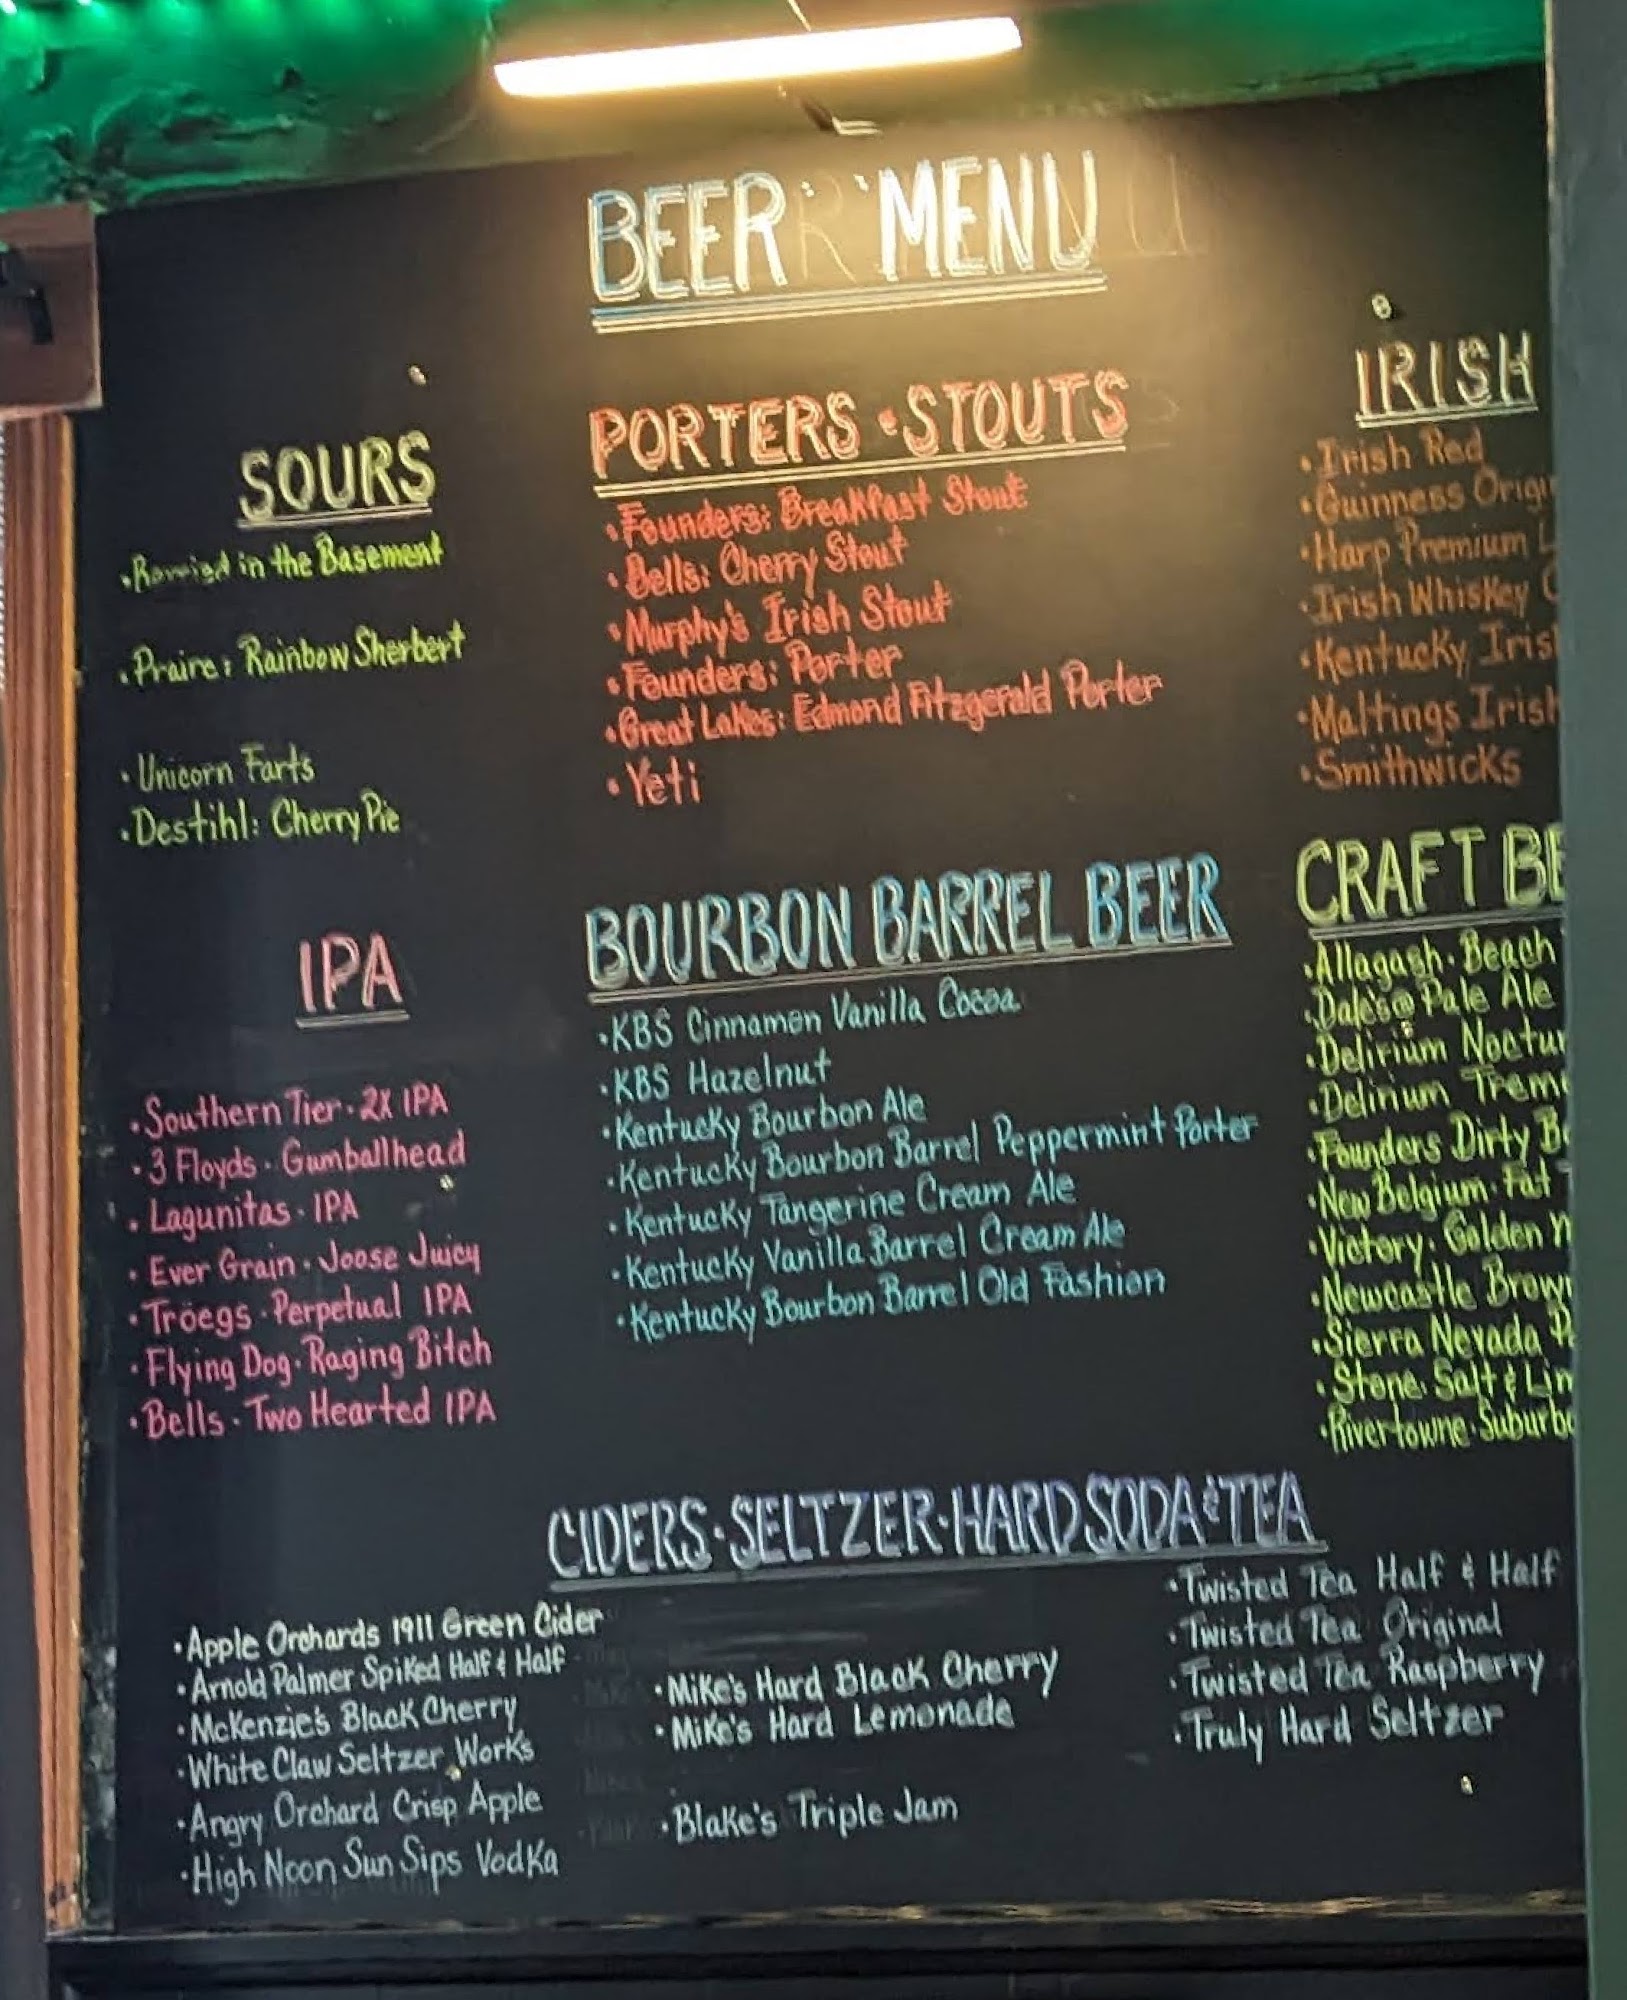 BEER MENU
SOURS
in the Basement
• Praire: Rainbow Sherbert
• Unicorn Farts
• Destihl: Cherry Pie
IPA
• Southern Tier • 2X IPA
• 3 Floyds • Gumballhead
• Lagunitas • IPA
• Ever Grain • Joose Juicy
• Tröegs • Perpetual IPA
• Flying Dog • Raging Bitch
• Bells • Two Hearted IPA
PORTERS • STOUTS
• Founders: Breakfast Stout
• Bells: Cherry Stout
• Murphy's Irish Stout
• Founders: Porter
• Great Lakes: Edmond Fitzgerald Porter
• Yeti
BOURBON BARREL BEER
• KBS Cinnamon Vanilla Cocoa
• KBS Hazelnut
• Kentucky Bourbon Ale
• Kentucky Bourbon Barrel Peppermint Porter
• Kentucky Tangerine Cream Ale
• Kentucky Vanilla Barrel Cream Ale
• Kentucky Bourbon Barrel Old Fashion
IRISH
• Irish Red
• Guinness Origi
• Harp Premium L
• Irish Whiskey
• Kentucky Iris
• Maltings Irish
• Smithwicks
CRAFT BE
• Allagash • Beach
• Dale's Pale Ale
• Delirium Noctur
• Delirium Treme
• Founders Dirty B
• New Belgium • Fat T
• Victory • Golden
• Newcastle Brown
• Sierra Nevada Pa
• Stone • Salt & Lim
• Rivertowne • Suburb
CIDERS • SELTZER • HARD SODA & TEA
• Apple Orchards 1911 Green Cider
• Arnold Palmer Spiked Half & Half
• McKenzie's Black Cherry
• White Claw Seltzer Works
• Angry Orchard Crisp Apple
• High Noon Sun Sips Vodka
• Mike's Hard Black Cherry
• Mike's Hard Lemonade
• Blake's Triple Jam
• Twisted Tea Half & Half
• Twisted Tea Original
• Twisted Tea Raspberry
• Truly Hard Seltzer